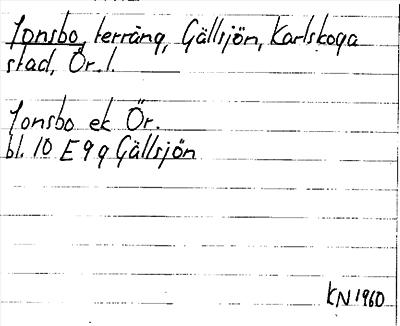 Jonsbo, terräng, Gällsjön, Karlskoga
stad, Ör. l.
Jonsbo ek Ör.
bl. 10 E 9 g Gällsjön
KN 1960